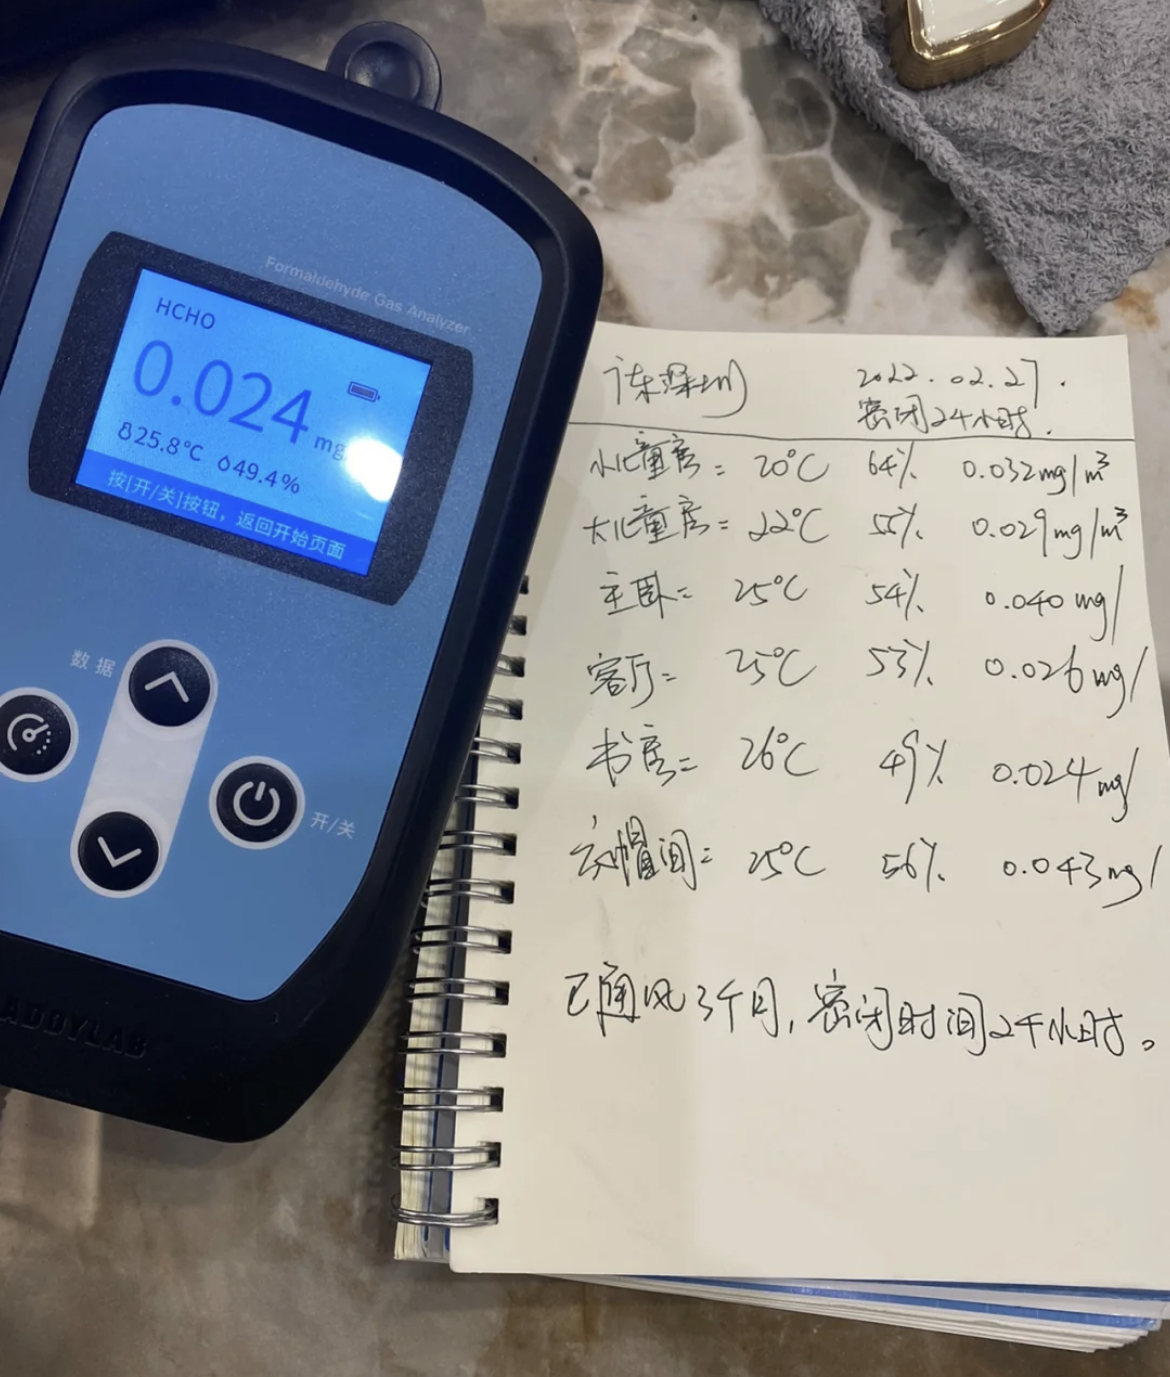 Formaldehyde Gas Analyzer
HCHO
0.024 mg
25.8℃ 49.4%
按[开/关]按钮，返回开始页面
数据
开/关
ADDYLAB
2022.02.27.
密闭24小时.
小儿童房= 20℃ 64% 0.032mg/m³
大儿童房= 22℃ 55% 0.029mg/m³
主卧= 25℃ 54% 0.040mg/
客厅= 25℃ 53% 0.026mg/
书房= 26℃ 49% 0.024mg/
衣帽间= 25℃ 56% 0.043mg/
已通风3个月，密闭时间24小时。